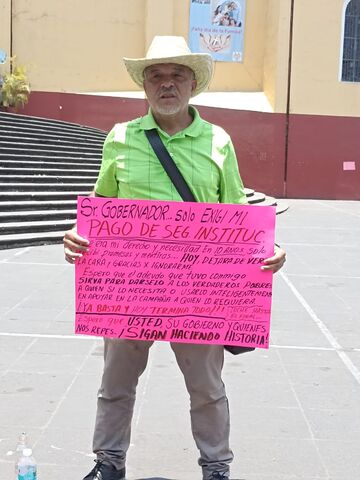 Sr. GOBERNADOR... SOLO EXIGI MI
PAGO DE SEG. INSTITUC
era mi derecho y necesidad En 10 AÑOS SOLO
promesas y mentiras... HOY, DEJARA DE VER
LA CARA, GRACIAS X IGNORARME
Espero que el adeudo que tuvo conmigo
SIRVA PARA DARSELO A LOS VERDADEROS POBRES
A QUIEN SI LO NECESITA O USELO INTELIGENTEMENTE
EN APOYAR EN LA CAMPAÑA A QUIEN LO REQUIERA.
¡YA BASTA Y HOY TERMINA TODO!!!
Espero que USTED, SU GOBIERNO Y QUIENES
NOS REPES. ¡SIGAN HACIENDO HISTORIA!